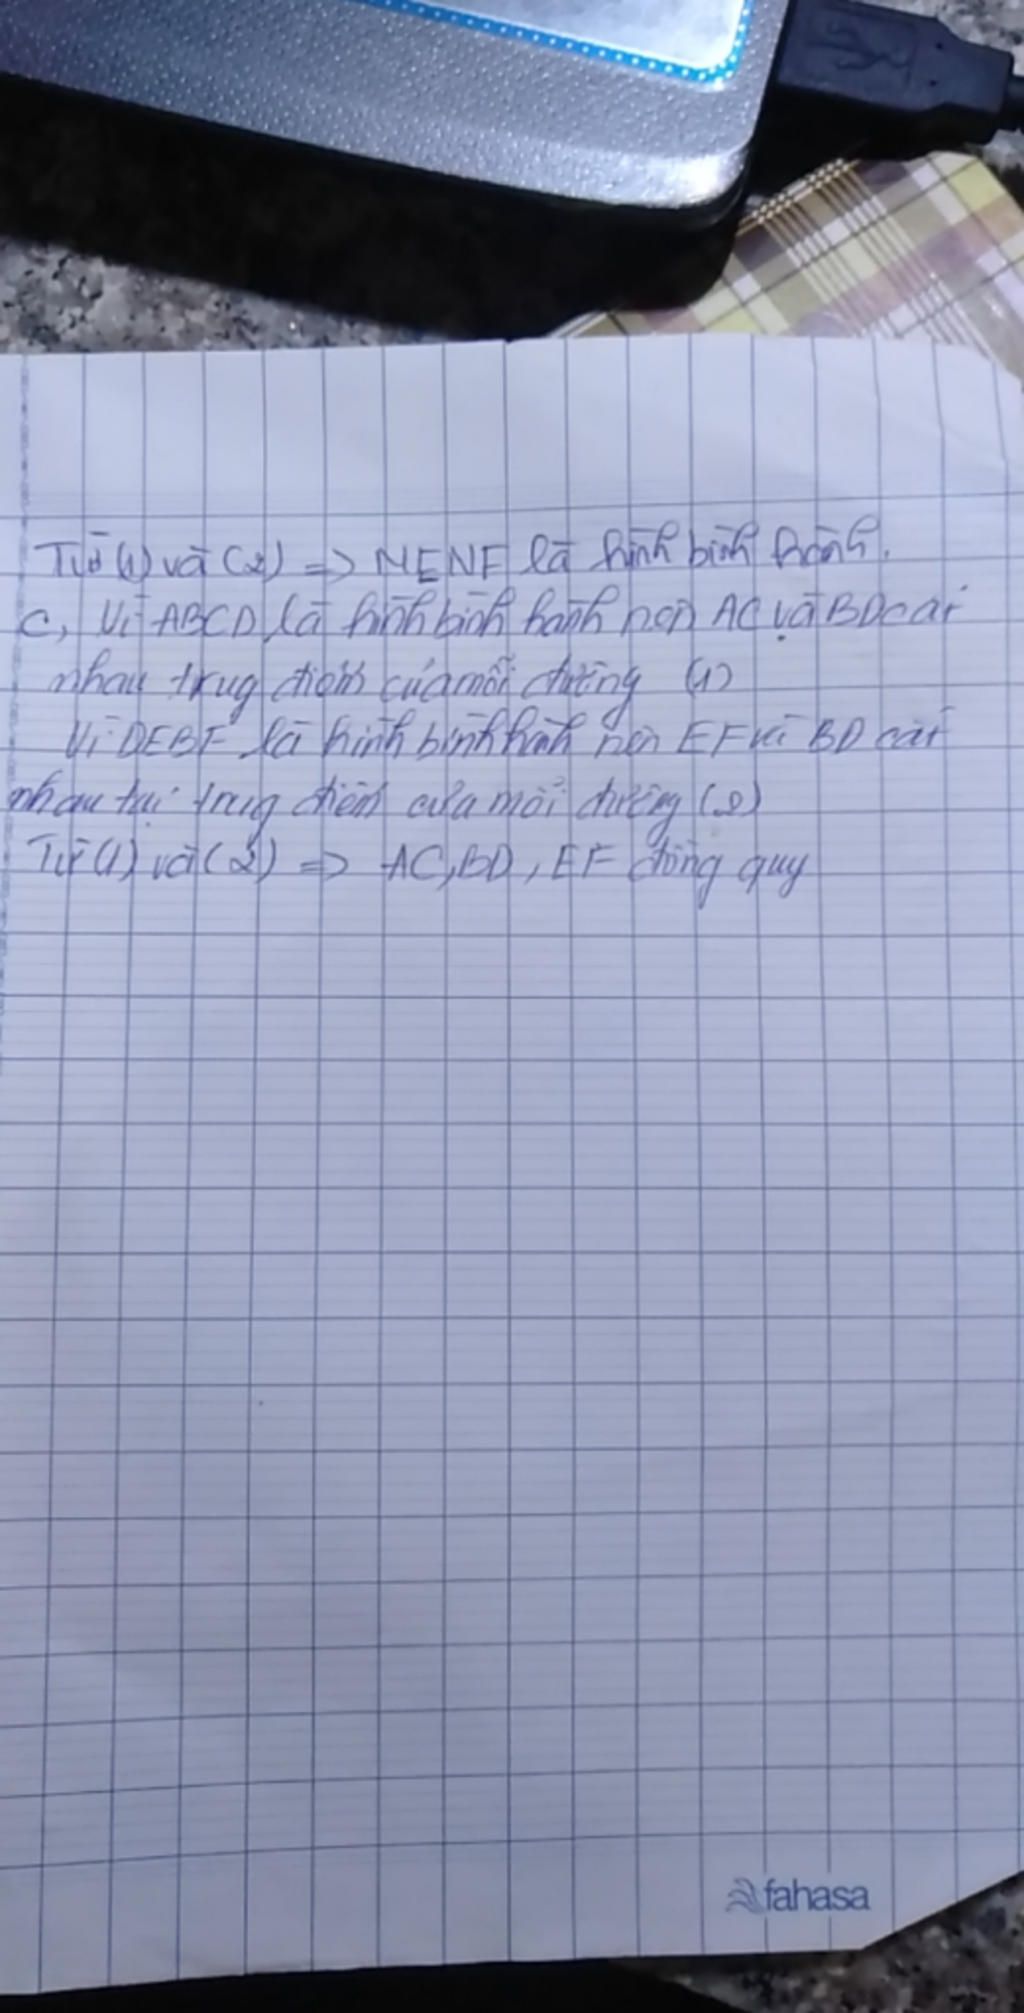 Từ (1) và (2) => MENF là hình bình hành.
c, Vì ABCD là hình bình hành nên AC và BD cắt
nhau trug điểm của mỗi đường (1)
Vì DEBF là hình bình hành nên EF và BD cắt
nhau tại trug điểm của mỗi đường (2)
Từ (1) và (2) => AC, BD, EF đồng quy
fahasa